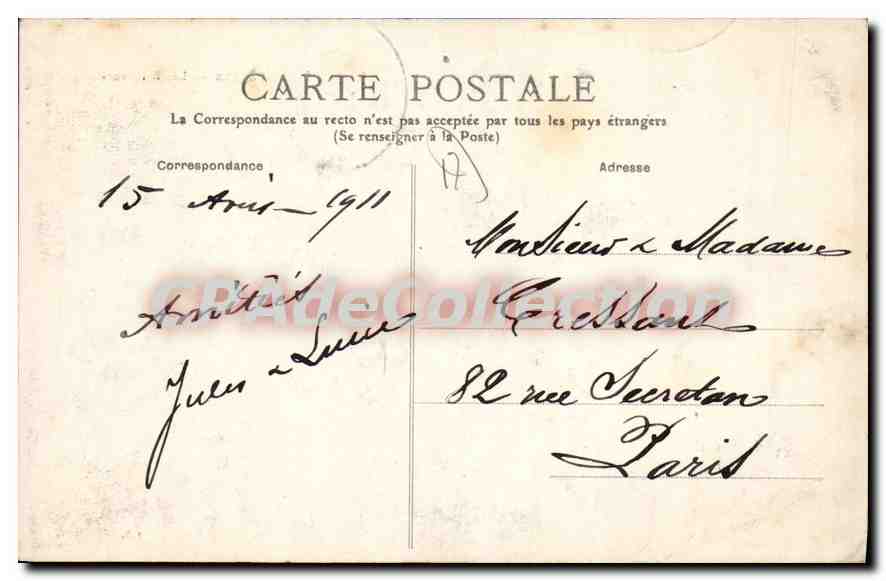 CARTE POSTALE
La Correspondance au recto n'est pas acceptée par tous les pays étrangers
(Se renseigner à la Poste)
Correspondance
Adresse
17
15 Avril 1911
Amitiés
Jules & Lucie
Monsieur & Madame
Cressant
82 rue Secretan
Paris
CPAdeCollection